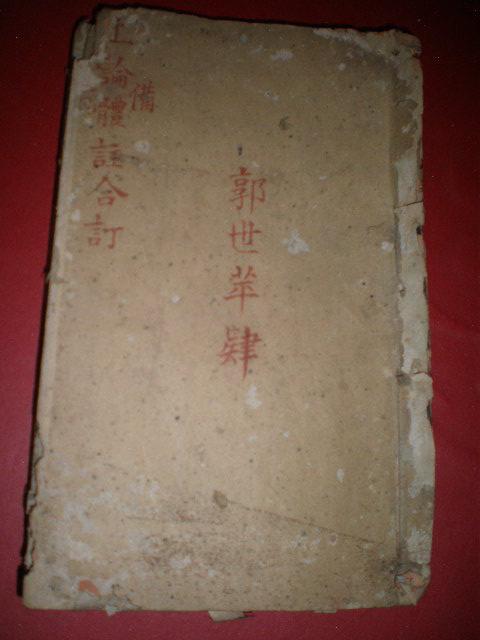 上論體註合訂
備
郭世苹肄